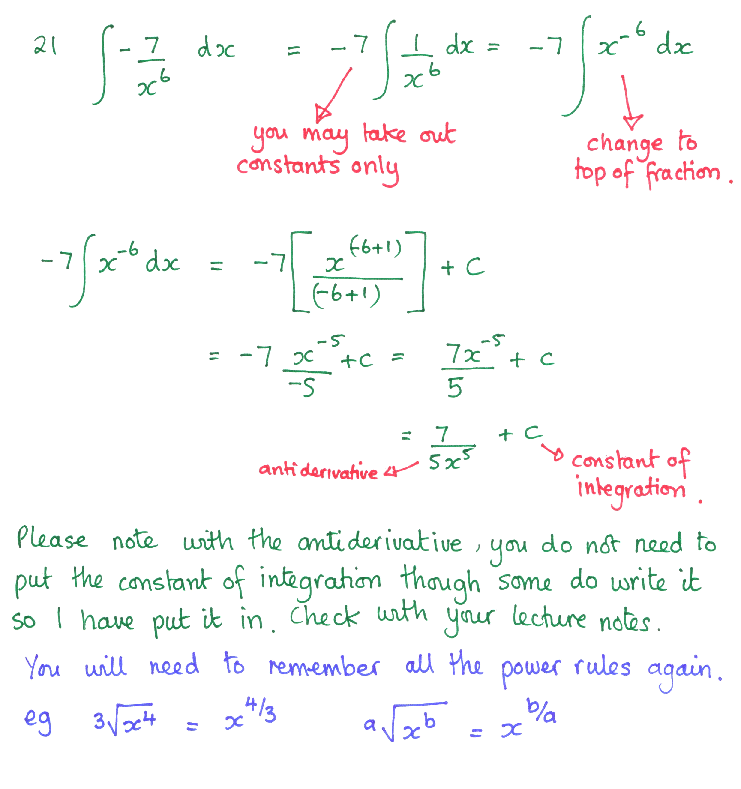 21 ∫ -7/x⁶ dx = -7 ∫ 1/x⁶ dx = -7 ∫ x⁻⁶ dx
you may take out
constants only
change to
top of fraction.
-7 ∫ x⁻⁶ dx = -7 [x^(-6+1)/(-6+1)] + C
= -7 x⁻⁵/-5 + c = 7x⁻⁵/5 + c
= 7/5x⁵ + C
antiderivative
constant of
integration.
Please note with the antiderivative, you do not need to
put the constant of integration though some do write it
so I have put it in. Check with your lecture notes.
You will need to remember all the power rules again.
eg 3√x⁴ = x^4/3 a√x^b = x^b/a